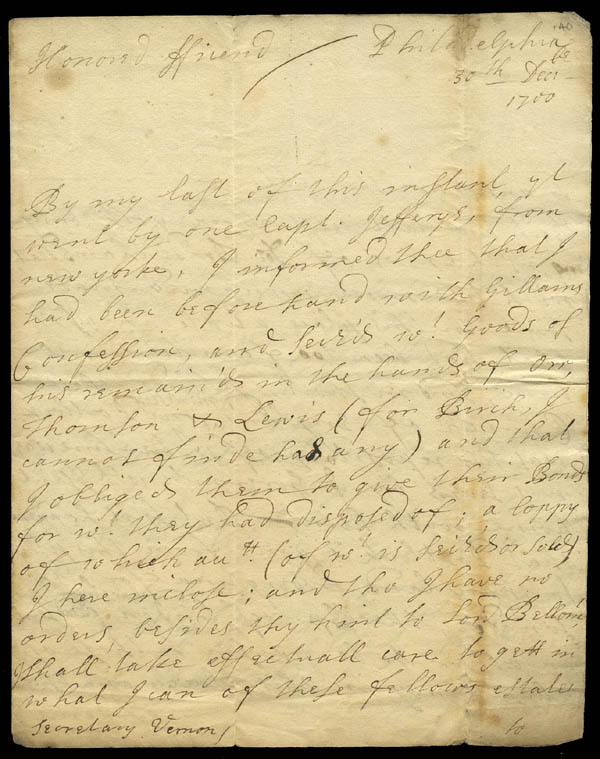 Honored ffriend Philadelphia
30th Decbr
1700
By my last of this instant, yt
went by one Capt. Jefferys, from
new yorke, I informed thee that I
had been before hand with Gillams
Confession, and Seir'd wt. Goods of
his remain'd in the hands of Orr,
Thomson & Lewis (for Birch, I
cannot finde has any) and that
I obliged them to give their Bonds
for wt. they had disposed of; a Coppy
of which acctt. (of wt. is Seir'd or Sold)
I here inclose; and tho I have no
orders, besides thy hint to Lord Bellomt
I shall take effectuall care to gett in
what I can of these fellows estates
Secretary Vernon to